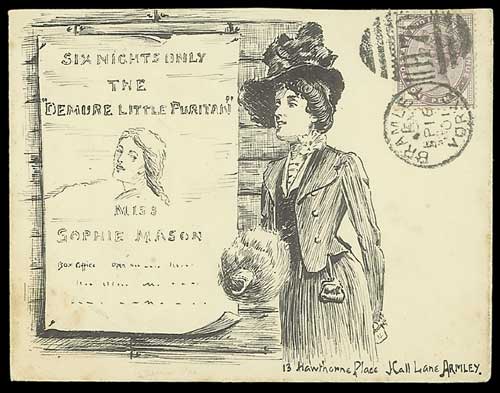 SIX NIGHTS ONLY
THE
"DEMURE LITTLE PURITAN"
MISS
SOPHIE MASON
BOX OFFICE OPEN
BRAMLEY
SP 16
01
YOR
13 Hawthorne Place Hall Lane ARMLEY.